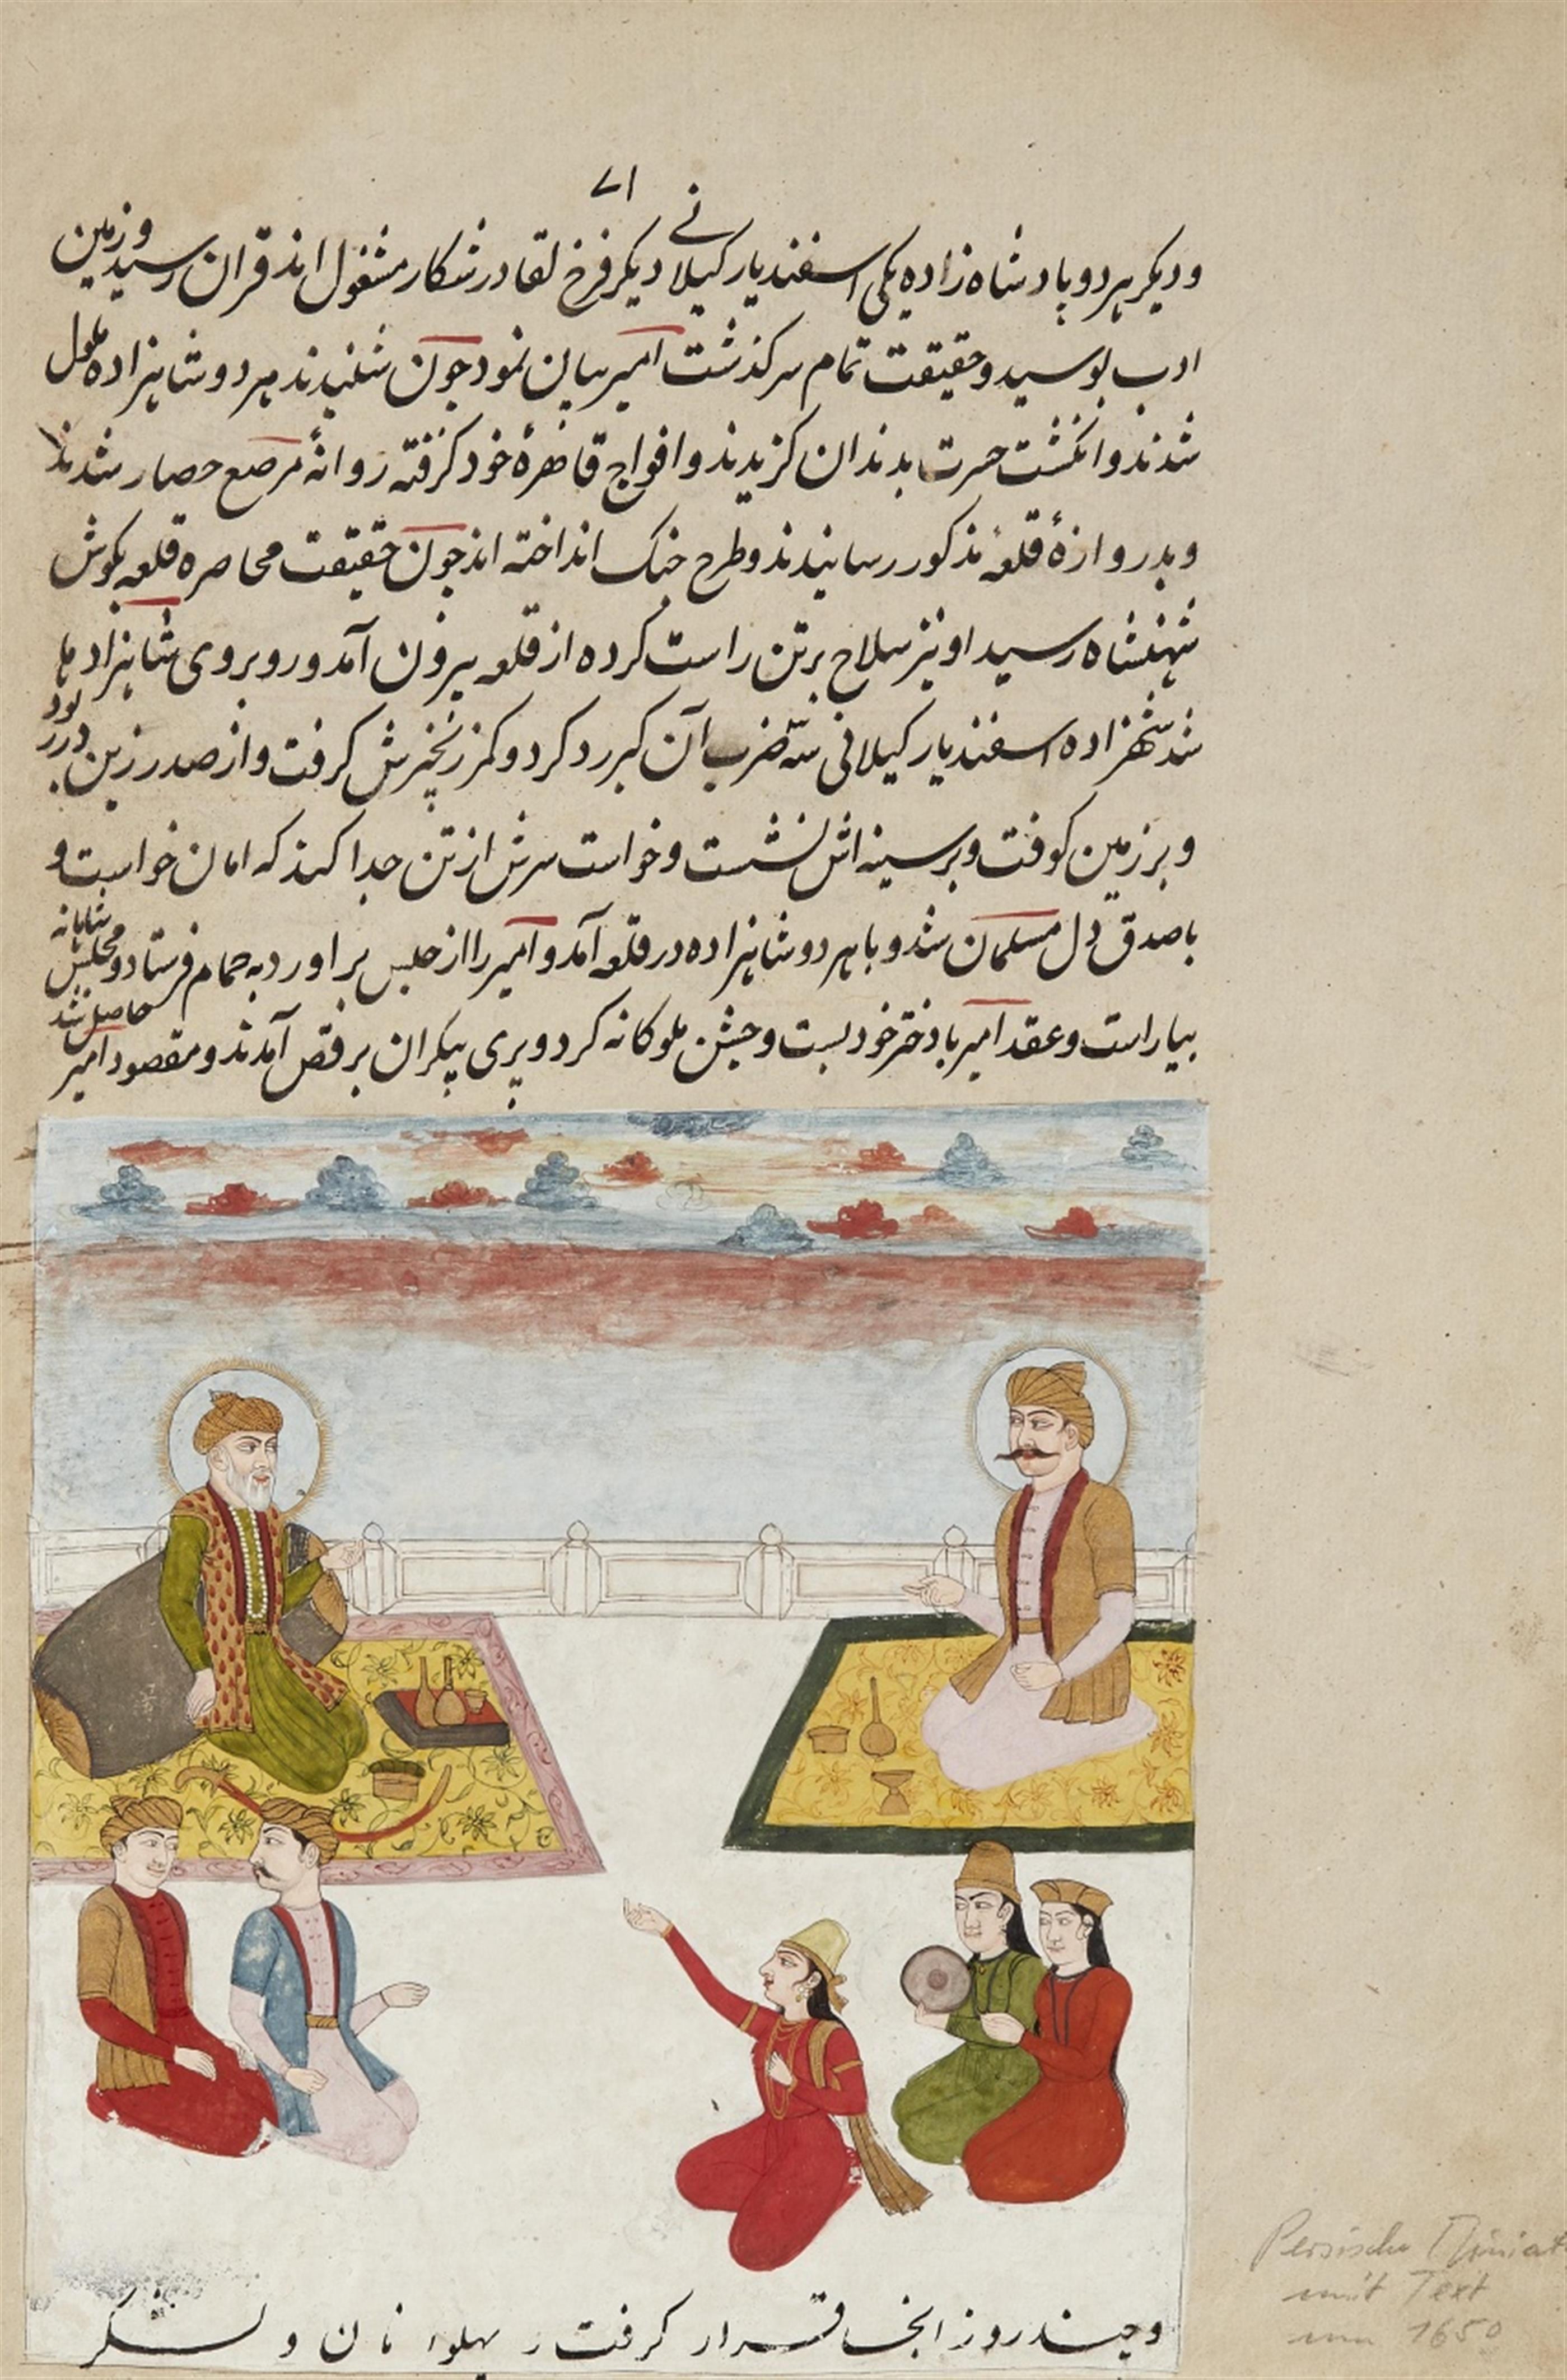 ۷۱
ودیکر هر دو پادشاه زاده یکی اسفندیار کیلانے دیکر فرخ لقا در شکار مشغول اند قران رسید و زمین
ادب بوسید و حقیقت تمام سرکذشت امیر بیان نمود جون شنیدند هر دو شاهزاده ملول
شدند و انکشت حسرت بدندان کزیدند و افواج قاهرهٔ خود کرفته روانهٔ مرصع حصار شدند
و بدروازهٔ قلعهٔ مذکور رسانیدند و طرح جنک انداخته اند جون حقیقت محاصره قلعه بکوش
شهنشاه رسید او نیز سلاح برتن راست کرده از قلعه بیرون آمد و روبروی شاهزادها
شد شهزاده اسفندیار کیلانی سه ضرب آن کبر رد کرد و کمر زنجیرش کرفت و از صدر زین در ربود
و بر زمین کوفت و بر سینه اش نشست و خواست سرش از تن جدا کند که امان خواست و
با صدق دل مسلمان شد و با هر دو شاهزاده در قلعه آمد و امیر را از حبس براورد به حمام فرستاد و مجلس شاهانه
بیاراست و عقد امیر با دختر خود بست و جشن ملوکانه کرد و پری پیکران برقص آمدند و مقصود امیر حاصل شد
و چند روز انجا قرار کرفت پهلوانان و لشکر
Persische Miniat
mit Text
um 1650